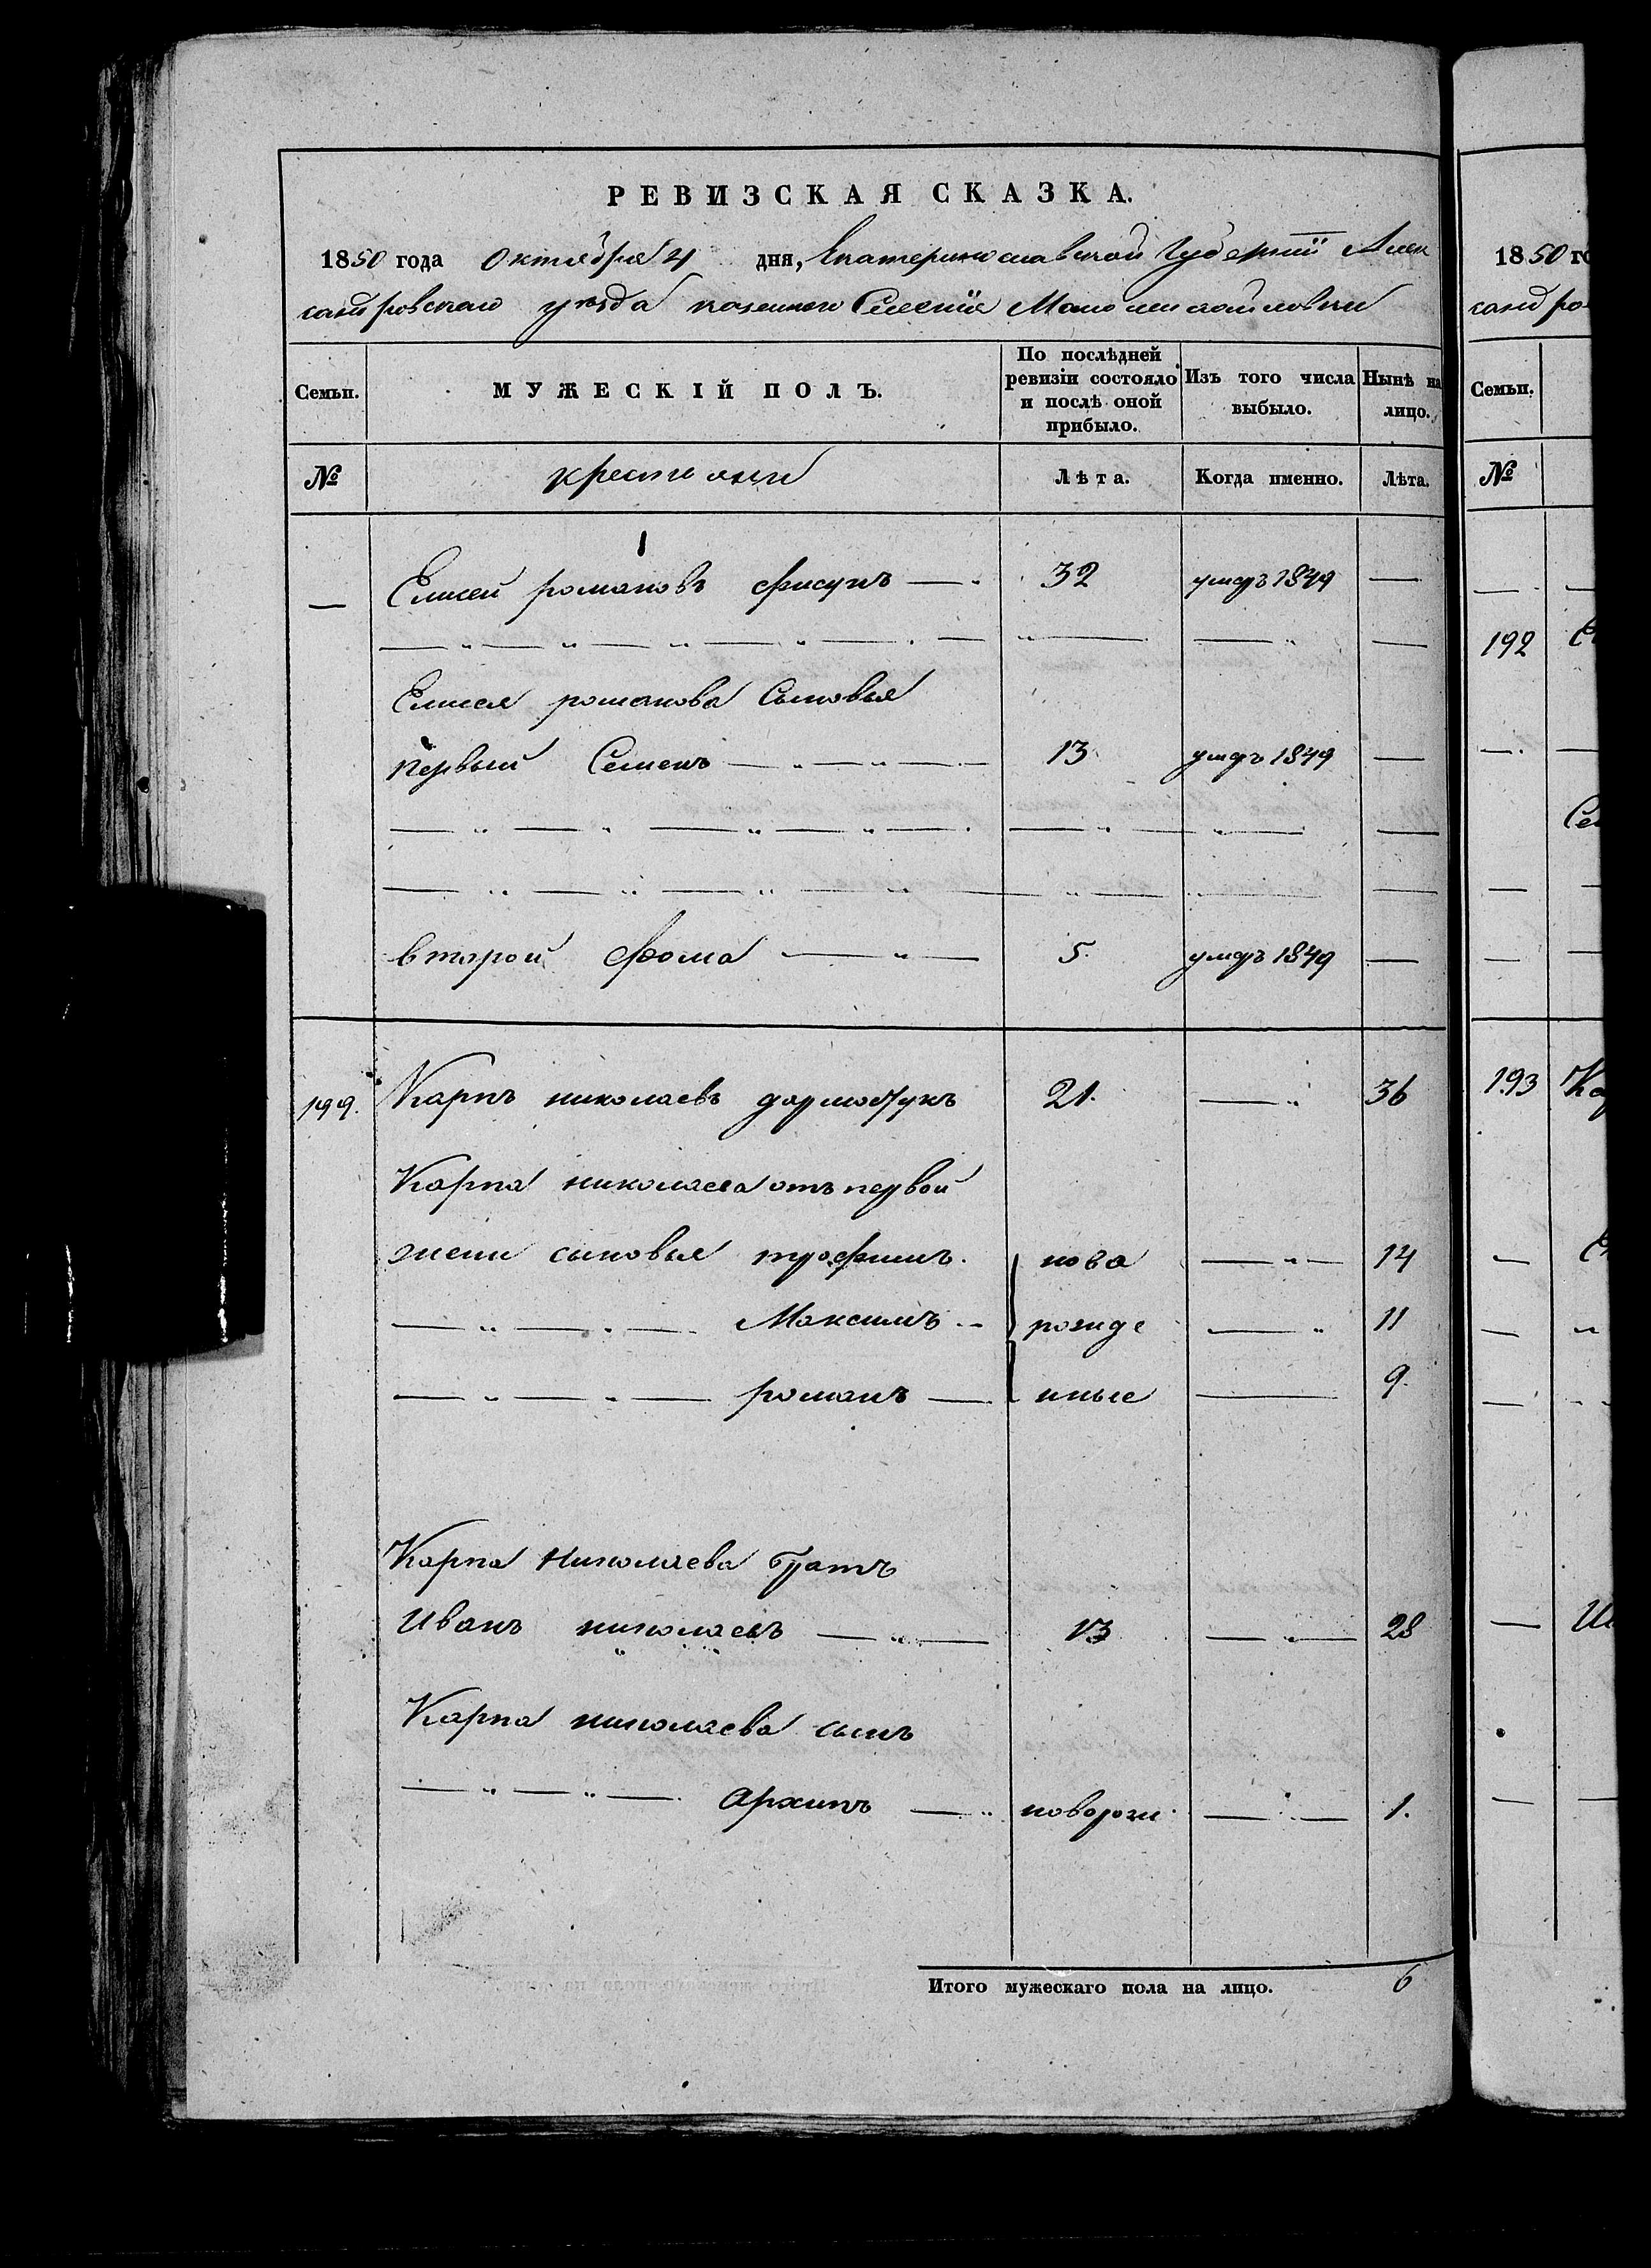 РЕВИЗСКАЯ СКАЗКА.
1850 года Октября 4 дня, Екатеринославской Губернiи Алек
сандровскаго уѣзда казенного Селенiя Маломихайловки
Семьи.
МУЖЕСКІЙ ПОЛЪ.
По послѣдней ревизіи состояло и послѣ оной прибыло.
Изъ того числа выбыло.
Нынѣ на лицо.
№ крестьяни Лѣта. Когда именно. Лѣта.
1
— Елисей романовъ Фисунъ — 32 умръ 1849 —
Елисея романова Сыновья
первый Семенъ — 13 умръ 1849 —
второй Фома — 5. умръ 1849 —
199. Карпъ николаевъ 21. — 36
Карпа николаева отъ первой
жени сыновья трофимъ. ново — 14
Максимъ рожде — 11
романъ — нные — 9.
Карпа Николаева братъ
Иванъ николаевъ — 13 — 28
Карпа николаева сынъ
архипъ — новорож — 1.
Итого мужескаго пола на лицо. 6
1850 го
санд ро
Семьи.
№
192
193 Ка